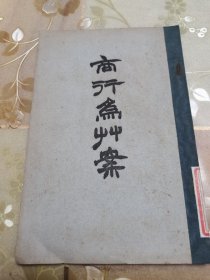 商行為草案